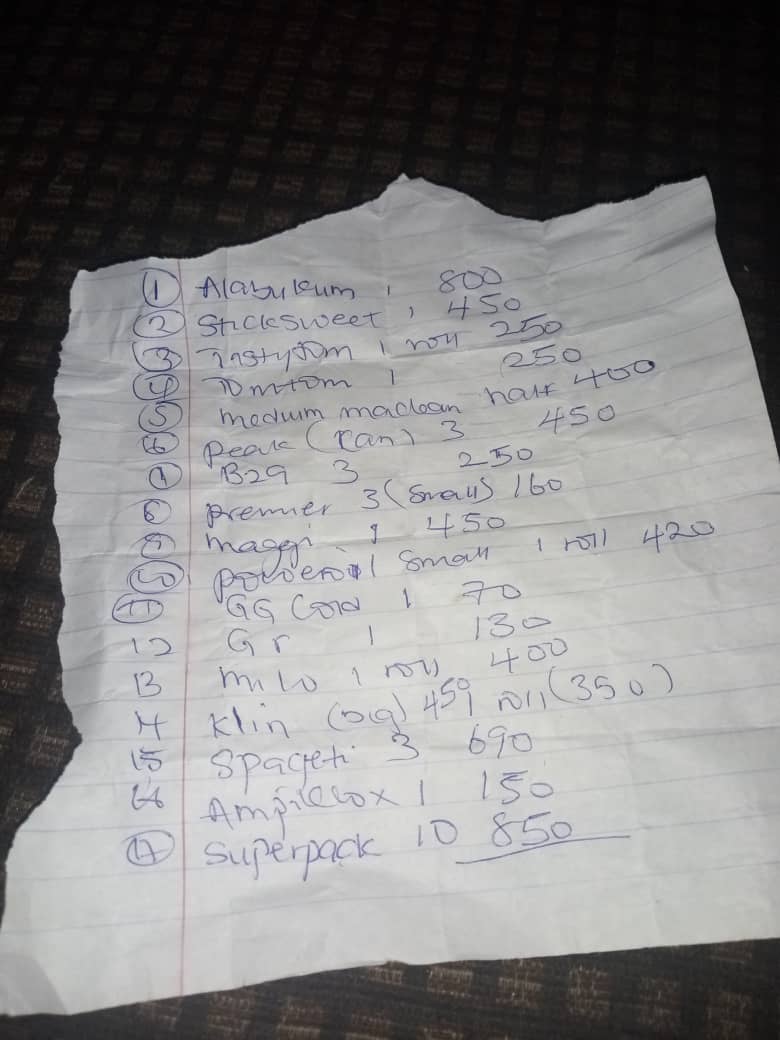 1 Alabukum 1 800
2 Sticksweet 1 450
3 Instytom 1 roll 250
4 Tomtom 1 250
5 medium maclean half 400
6 peak (can) 3 450
7 B29 3 250
8 premier 3 (small) 160
9 maggi 1 450
10 poweroil small 1 roll 420
11 GG Cord 1 70
12 Gr 1 130
13 milo 1 roll 400
14 Klin (big) 450 1 roll (350)
15 Spageti 3 690
16 Ampiclox 1 150
17 Superpack 10 850